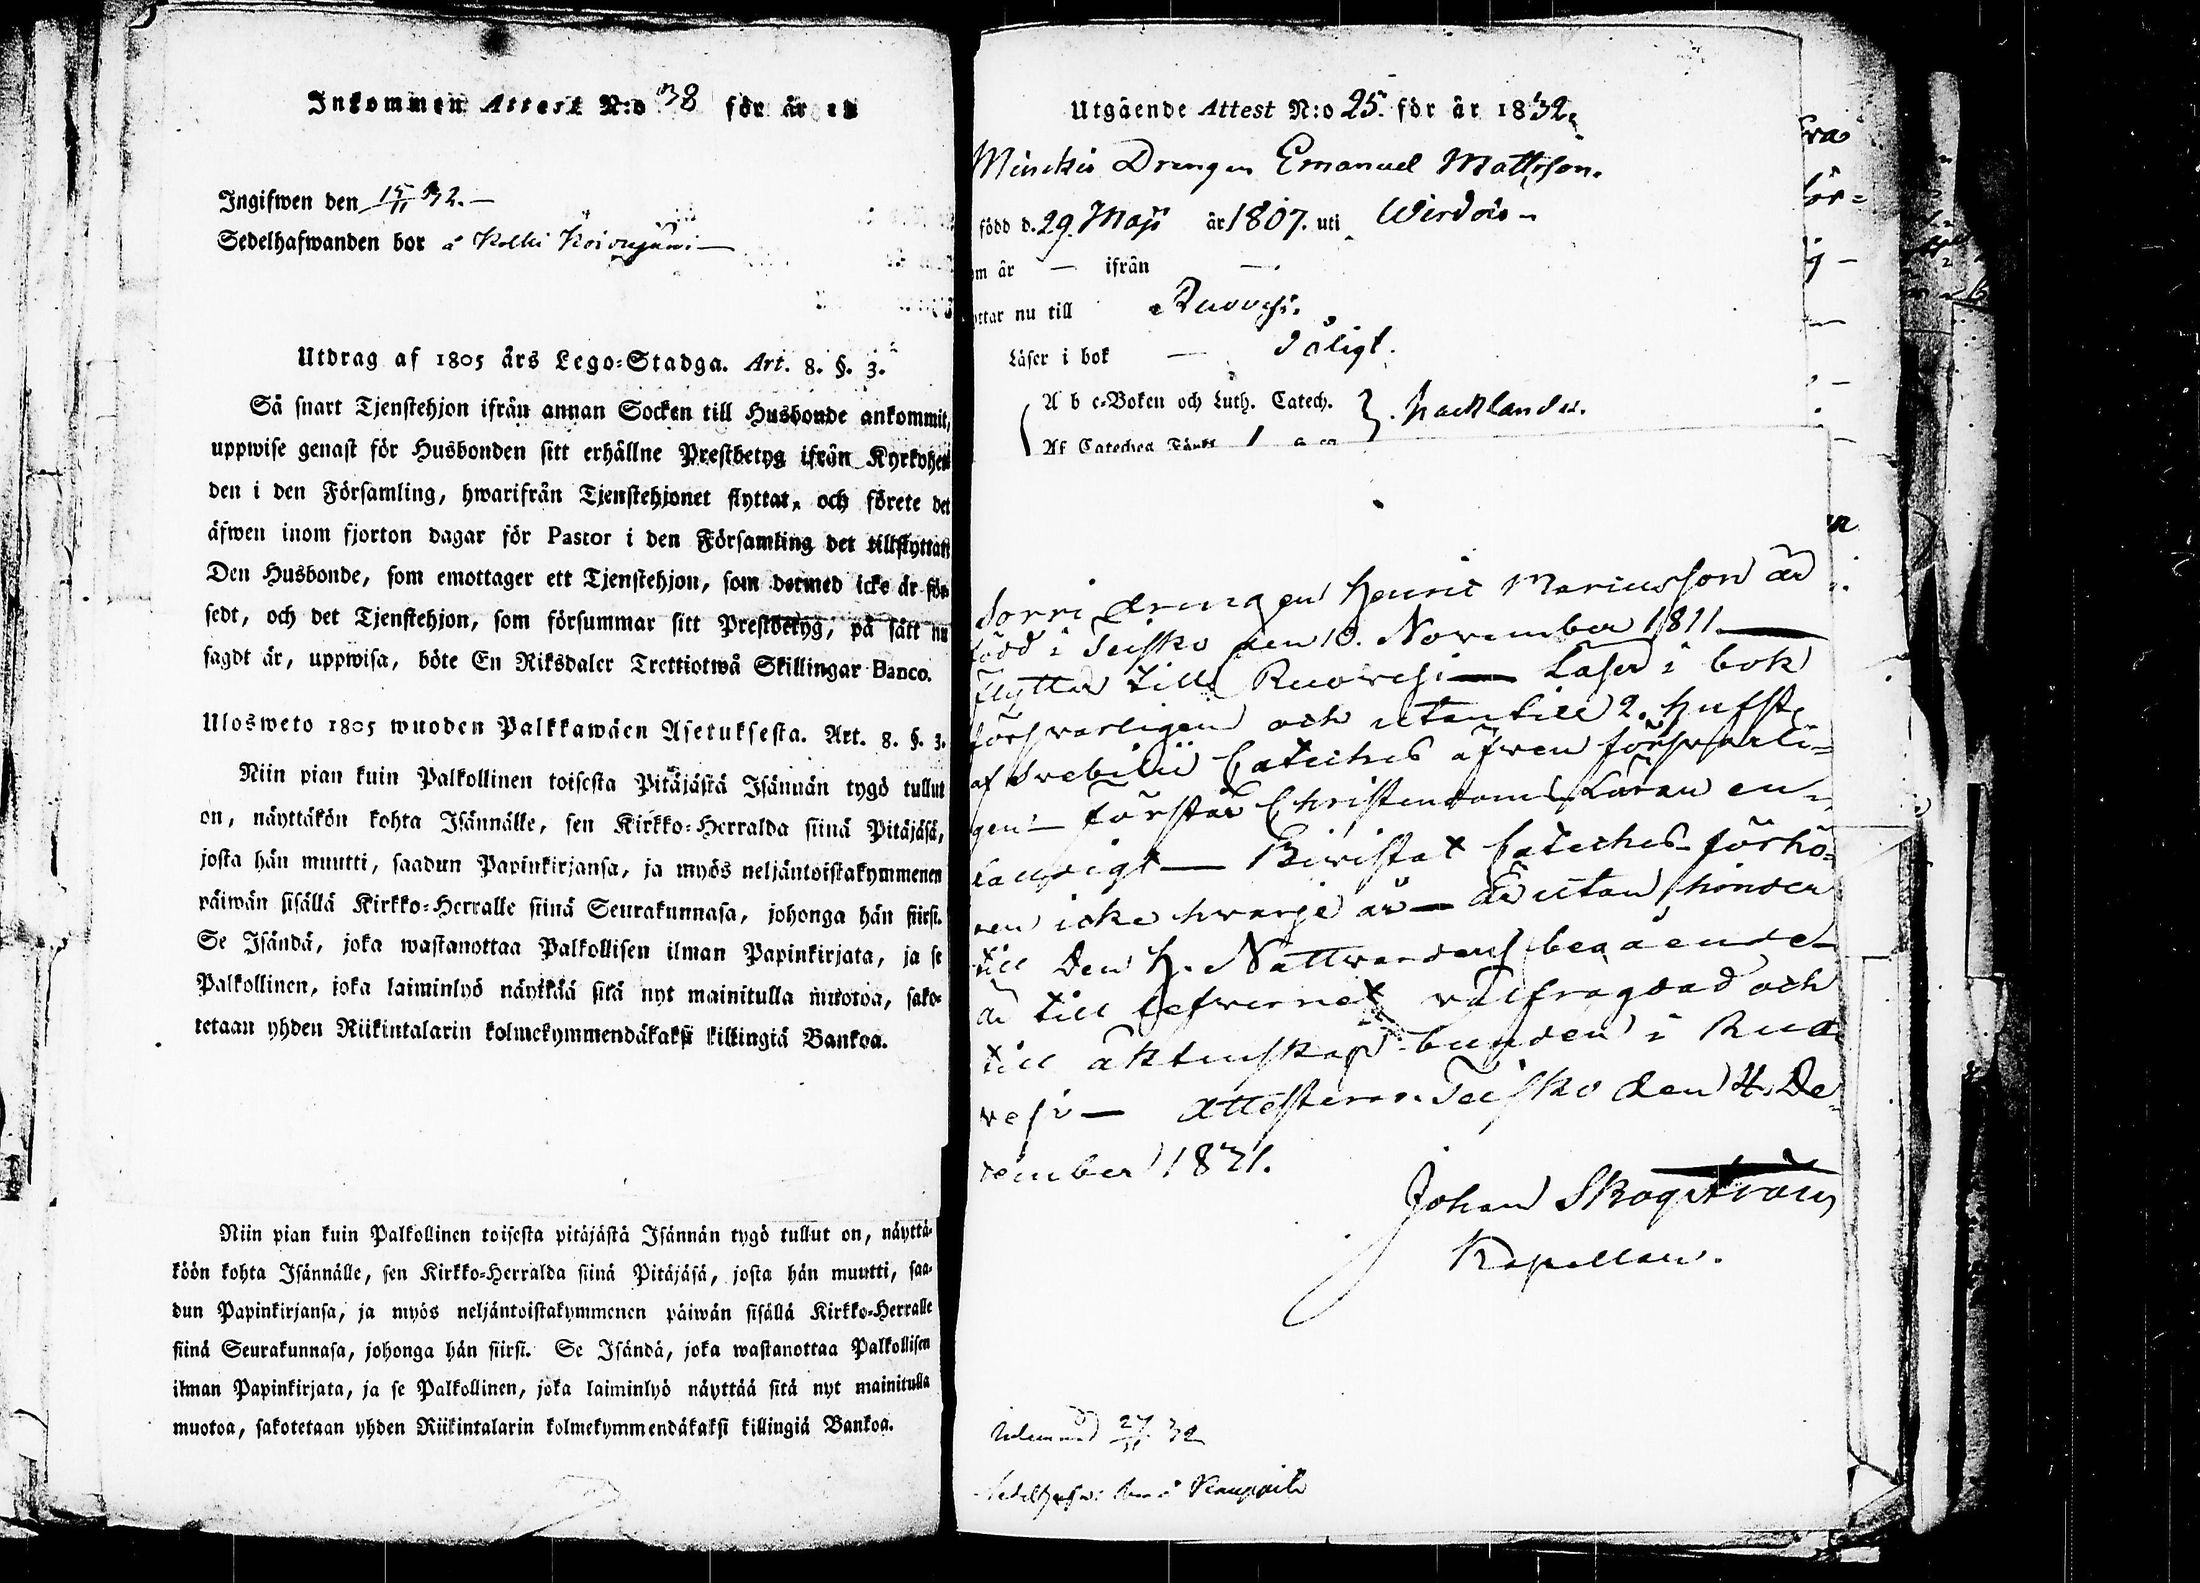 Inkommen Attest N:o 38 för år 18
Ingifwen den 15/11 32.
Sedelhafwanden bor å Kolhi Koivujärvi
Utdrag af 1805 års Lego-Stadga. Art. 8. §. 3.
Så snart Tjenstehjon ifrån annan Socken till Husbonde ankommit,
uppwise genast för Husbonden sitt erhållne Prestbetyg ifrån Kyrkoher
den i den Församling, hwarifrån Tjenstehjonet flyttat, och förete det
äfwen inom fjorton dagar för Pastor i den Församling det tillflyttat
Den Husbonde, som emottager ett Tjenstehjon, som dermed icke är för
sedt, och det Tjenstehjon, som försummar sitt Prestbetyg, på sätt nu
sagdt är, uppwisa, böte En Riksdaler Trettiotwå Skillingar Banco.
Ulosweto 1805 wuoden Palkkawäen Asetuksesta. Art. 8. §. 3.
Niin pian kuin Palkollinen toisesta Pitäjästä Isännän tygö tullut
on, näyttäkön kohta Isännälle, sen Kirkko-Herralda siinä Pitäjäsä,
josta hän muutti, saadun Papinkirjansa, ja myös neljäntoistakymmenen
päiwän sisällä Kirkko-Herralle siinä Seurakunnasa, johonga hän siirsi.
Se Isändä, joka wastanottaa Palkollisen ilman Papinkirjata, ja se
Palkollinen, joka laiminlyö näyttää sitä nyt mainitulla muotoa, sako-
tetaan yhden Riikintalarin kolmekymmendäkaksi killingiä Bankoa.
Niin pian kuin Palkollinen toisesta pitäjästä Isännän tygö tullut on, näyttä-
köön kohta Isännälle, sen Kirkko-Herralda siinä Pitäjäsä, josta hän muutti, saa-
dun Papinkirjansa, ja myös neljäntoistakymmenen päiwän sisällä Kirkko-Herralle
siinä Seurakunnasa, johonga hän siirsi. Se Isändä, joka wastanottaa Palkollisen
ilman Papinkirjata, ja se Palkollinen, joka laiminlyö näyttää sitä nyt mainitulla
muotoa, sakotetaan yhden Riikintalarin kolmekymmendäkaksi killingiä Bankoa.
Utgående Attest N:o 25. för år 1832.
Drengen Emanuel Mattsson.
född d. 29. Maji år 1807. uti Wirdois
om år — ifrån —
ttar nu till Ruovesi.
Läser i bok — dåligt.
A b c-Boken och Luth. Catech. } hacklande.
Af Cateches
Sorri drengen Henric Mariusson är
född i Teisko den 10. November 1811. —
flyttar till Ruowesi — Läser i bok
försvarligen och utantill 2. hufst.
af Svebilii Cateches äfwen försvarli=
gen — förstår Christendoms Läran en-
faldigt — Biwistat Cateches-förhö-
ren icke hwarje år — Är utan hinder
till Den H. Nattwardens begående
är till lefwernet wälfrägdad och
till äktenskap bunden i Ruo
vesi — attesterar. Teisko den 4. De-
cember 1831.
Johan Skogström
Kapellan.
Inlemnad 27/11 32
Sedelhafw: bor å Kauppila